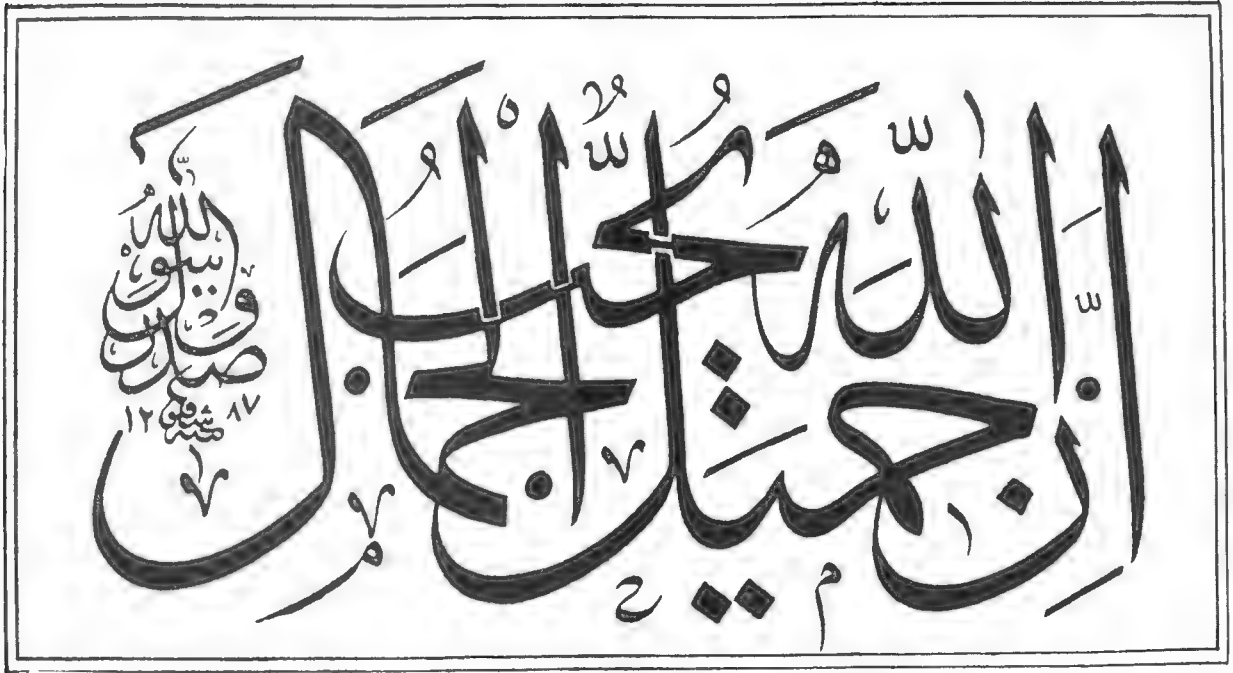 إِنَّ اللهَ جَمِيلٌ يُحِبُّ الْجَمَالَ
صدق رسول الله
شفيق
١٢٨٧